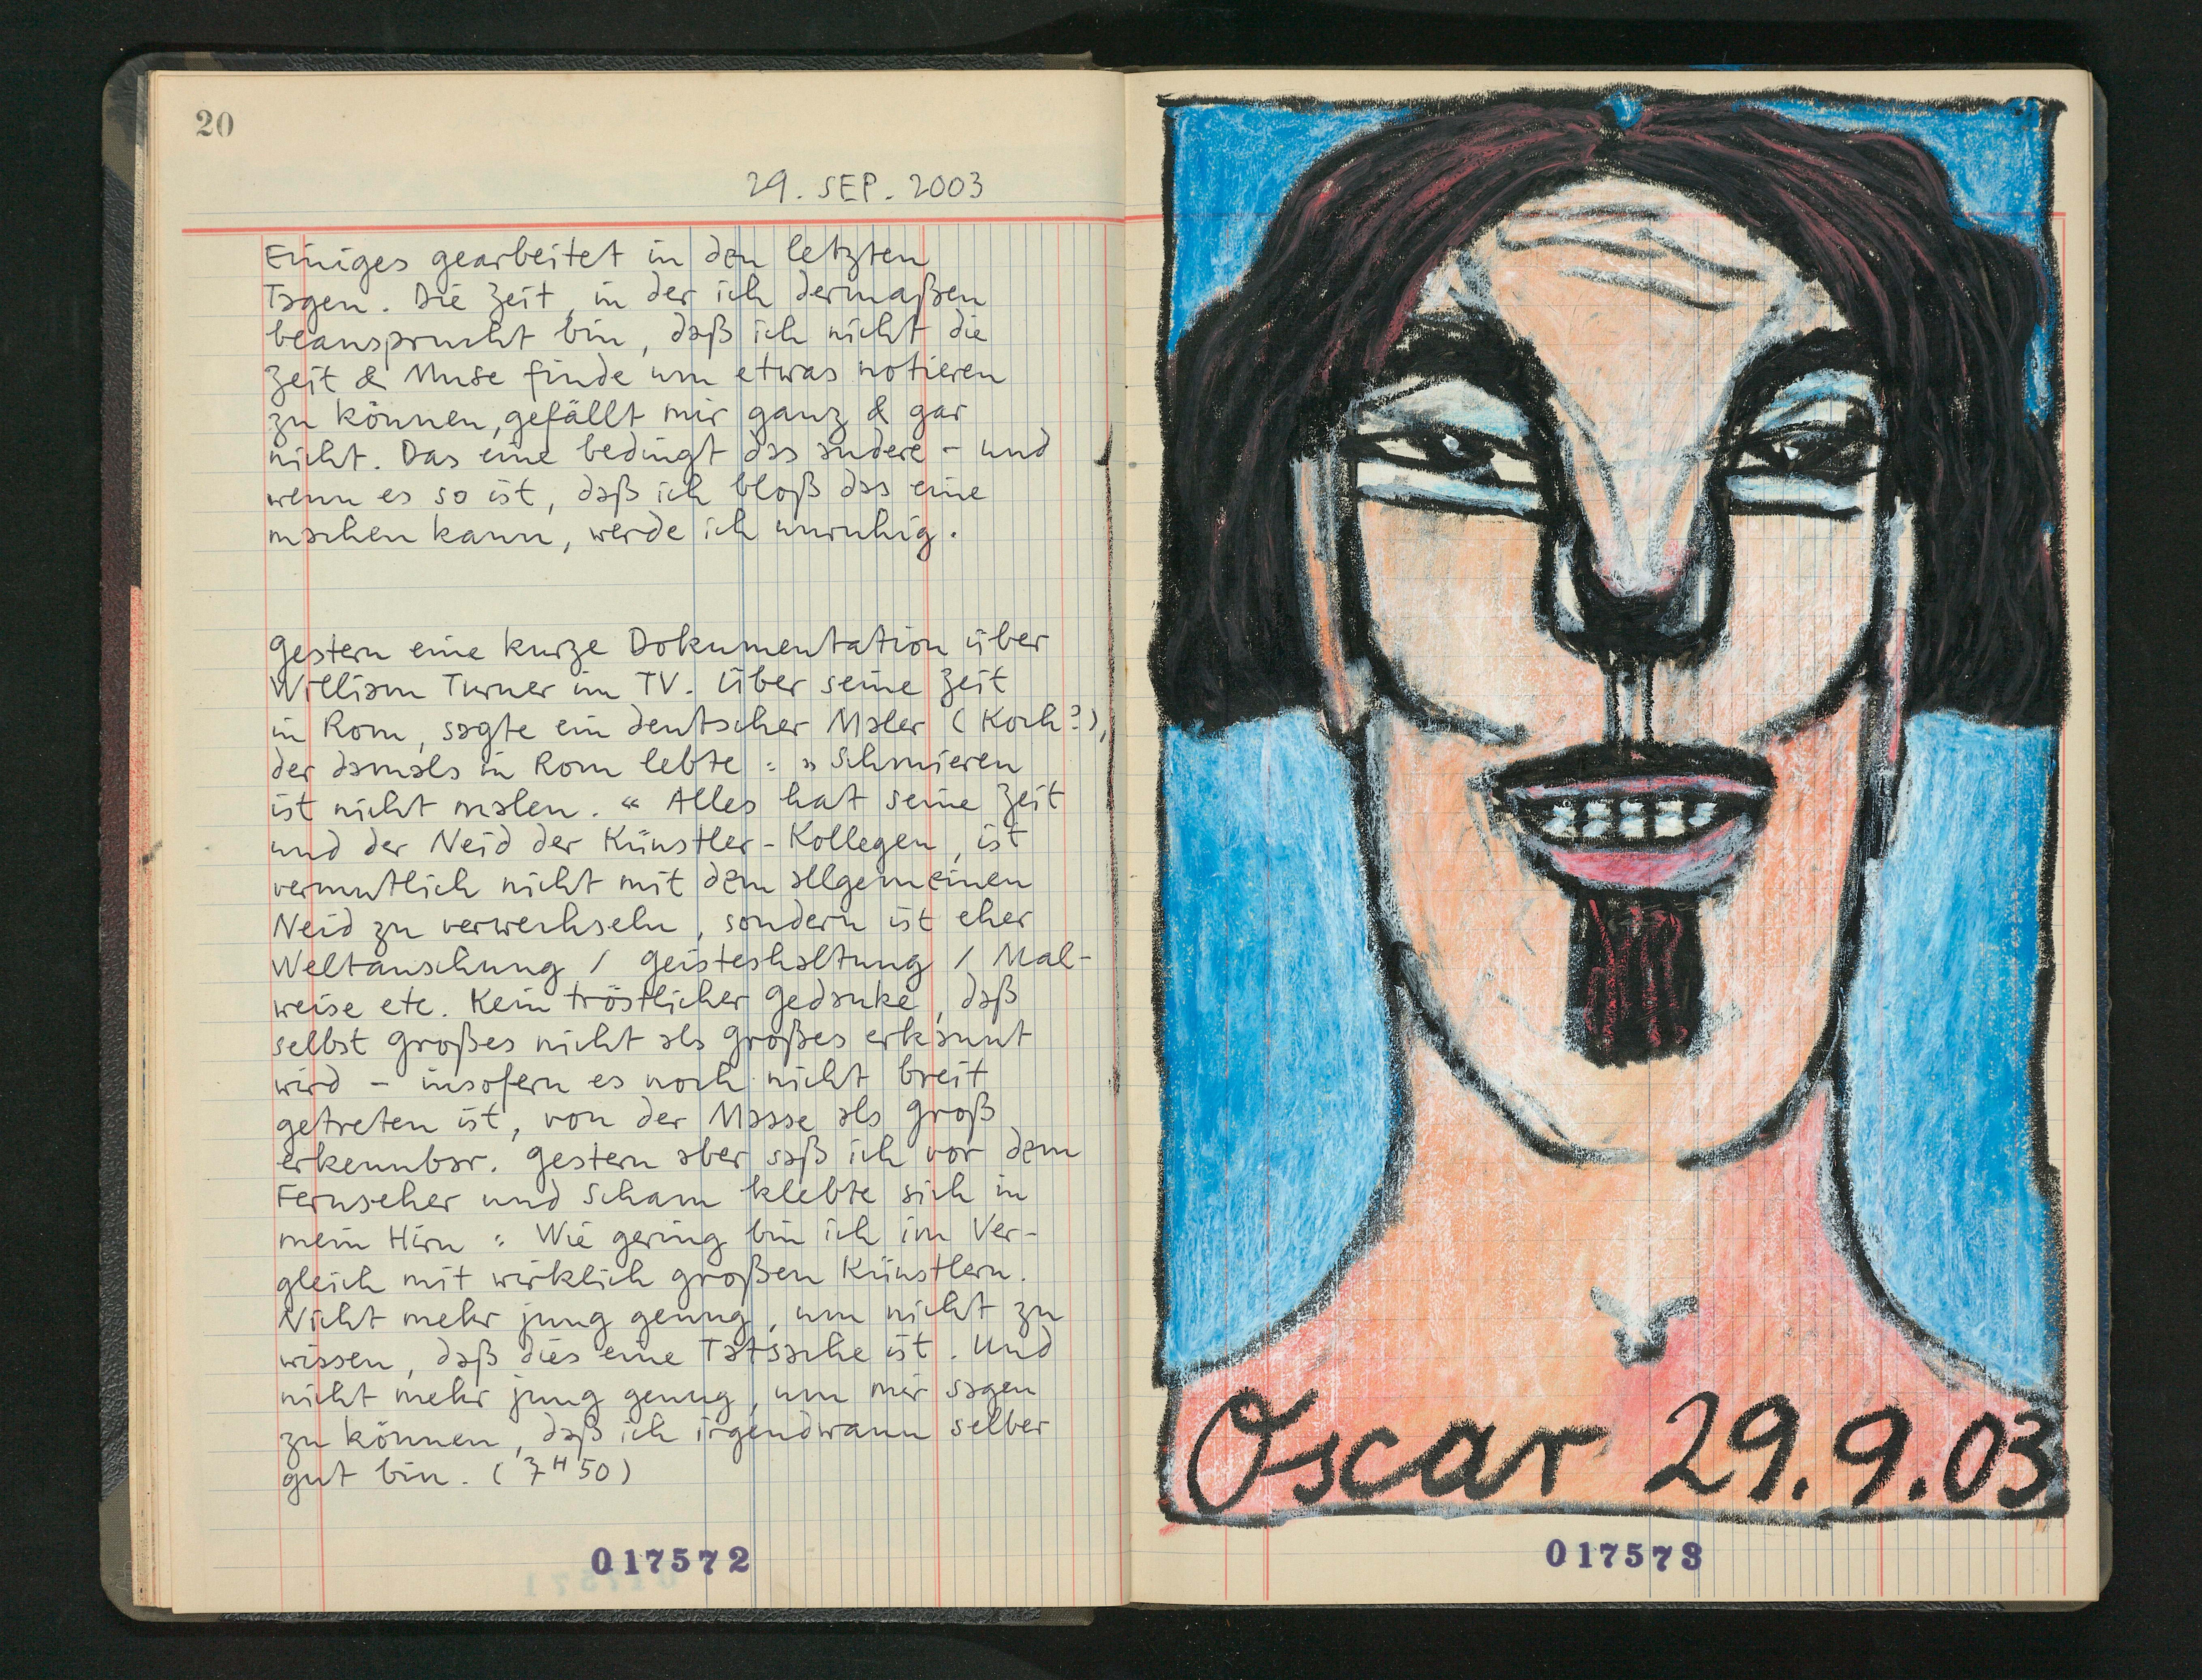 20
29. SEP. 2003
Einiges gearbeitet in den letzten
Tagen. Die Zeit, in der ich dermaßen
beansprucht bin, daß ich nicht die
Zeit & Muse finde um etwas notieren
zu können, gefällt mir ganz & gar
nicht. Das eine bedingt das andere – und
wenn es so ist, daß ich bloß das eine
machen kann, werde ich unruhig.
Gestern eine kurze Dokumentation über
William Turner im TV. Über seine Zeit
in Rom, sagte ein deutscher Maler (Koch?),
der damals in Rom lebte : » Schmieren
ist nicht malen. “ Alles hat seine Zeit
und der Neid der Künstler-Kollegen, ist
vermutlich nicht mit dem allgemeinen
Neid zu verwechseln, sondern ist eher
Weltanschung / Geisteshaltung / Mal-
weise etc. Kein tröstlicher Gedanke, daß
selbst Großes nicht als Großes erkannt
wird – insofern es noch nicht breit
getreten ist, von der Masse als Groß
erkennbar. Gestern aber saß ich vor dem
Fernseher und Scham klebte sich in
mein Hirn : Wie gering bin ich im Ver-
gleich mit wirklich großen Künstlern.
Nicht mehr jung genug, um nicht zu
wissen, daß dies eine Tatsache ist. Und
nicht mehr jung genug, um mir sagen
zu können, daß ich irgendwann selber
gut bin. (7ᴴ50)
017572
Oscar 29.9.03
017573